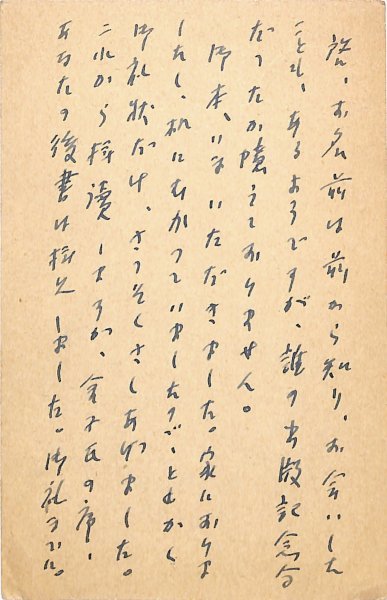 諾、お名前は前から知り、お会いした
こともあるようですが、誰の出版記念会
だったか憶えておりません。
御本、いまいただきました。家におりま
したし、机にむかっていましたので、ともかく
御礼状だけ、さっそくさしあげました。
これから拝讀しますが、金子氏の序、
あなたの後書は拝見しました。御礼まで。